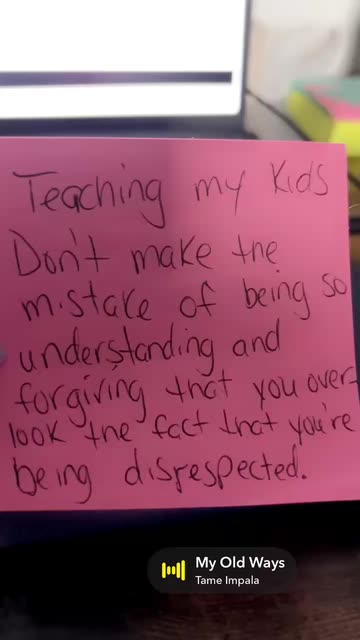 Teaching my Kids
Don't make the
mistake of being so
understanding and
forgiving that you over-
look the fact that you're
being disrespected.
My Old Ways
Tame Impala